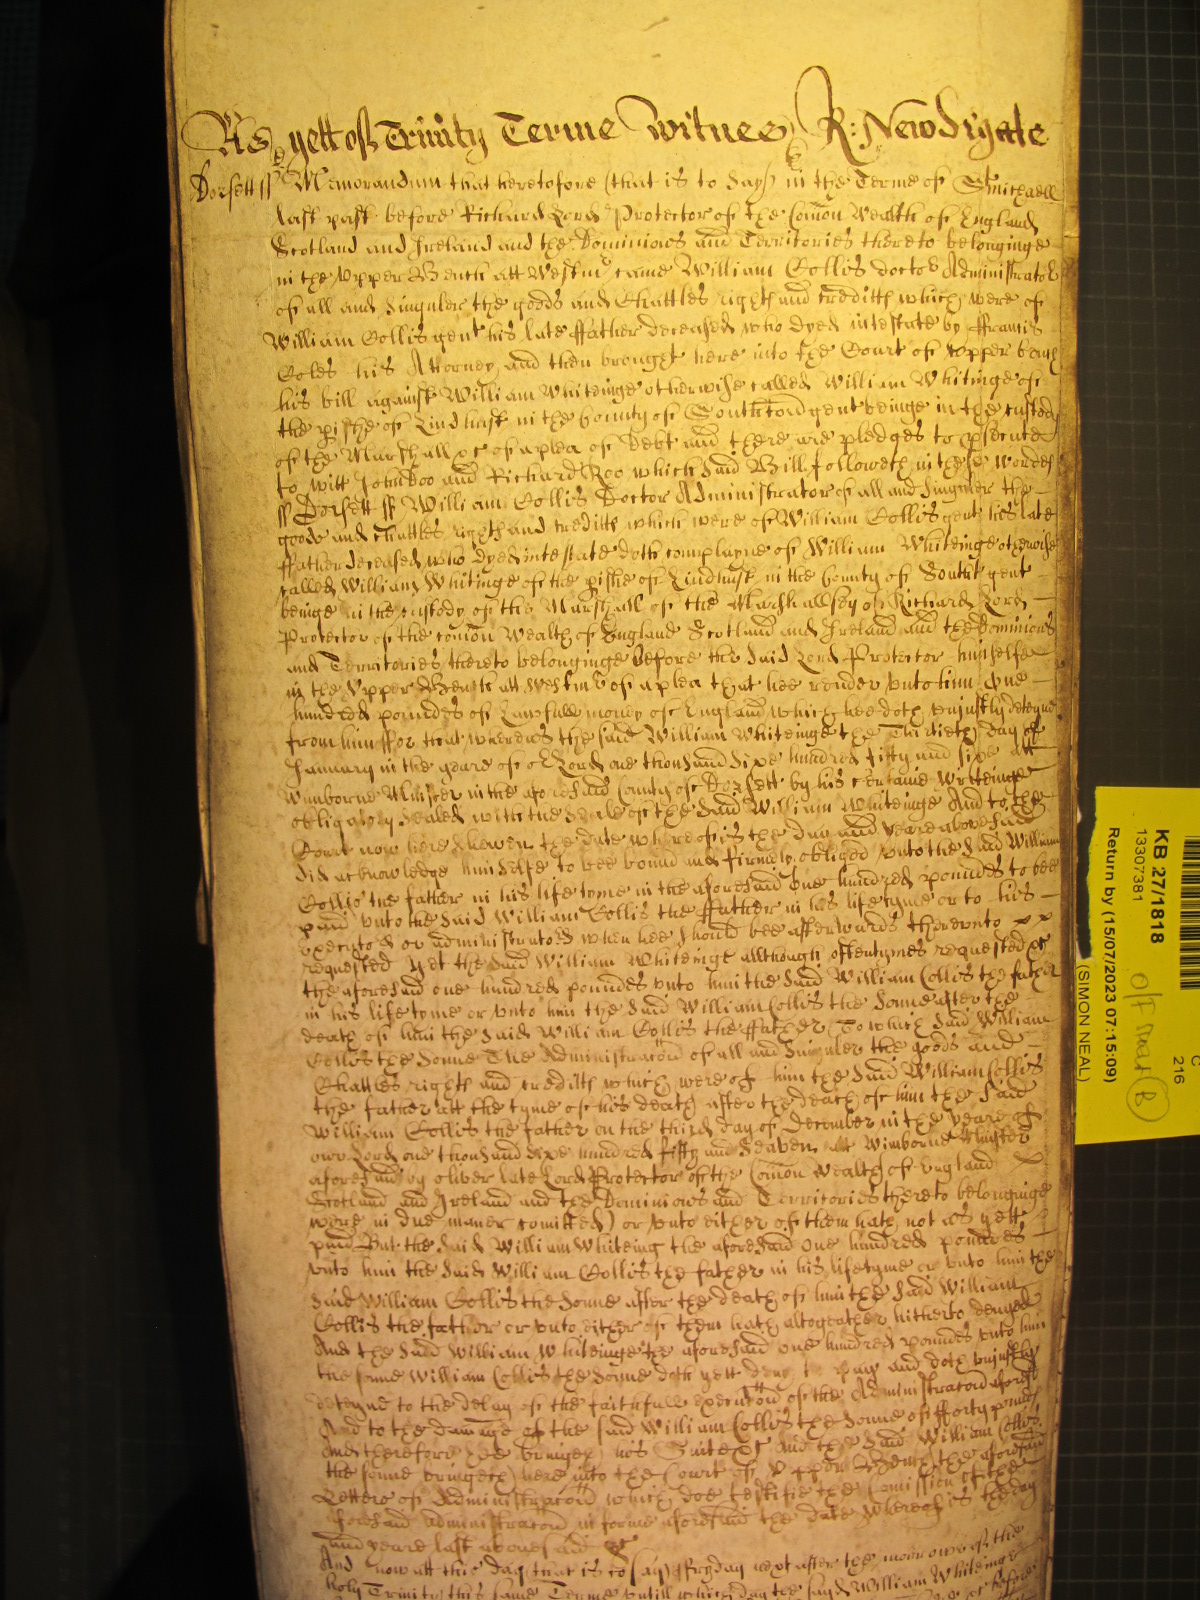 As yett of Trinity Terme Witnes R: Newdigate
Dorsett ss Memorandum that heretofore (that is to say) in the Terme of St Michaell
last past before Richard Lord Protector of the Comon Wealth of England
Scotland and Ireland and the Dominions and Territories thereto belonginge
in the Upper Bench att Westmr came William Collis doctor Administrator
of all and singuler the goods and Chattles rights and creditts which were of
William Collis gent his late ffather deceased who dyed intestate by ffrancis
Coles his Attorney and then brought here into the Court of Upper bench
his bill against William Whiteinge otherwise called William Whitinge of
the pishe of Lindhust in the County of Southton gent beinge in the custody
of the Marshall &c of a plea of Debt and there are pledges to psecute
to witt John Doo and Richard Roo which said Bill followeth in these wordes
ss Dorsett ss William Collis Doctor Administrator of all and singuler the
goods and chattles rights and creditts which were of William Collis gent his late
ffather deceased who dyed intestate doth complayne of William Whiteinge otherwise
called William Whitinge of the pishe of Lindhust in the County of Southt gent
beinge in the custody of the Marshall of the Marshallsey of Richard Lord
Protector of the comon Wealth of England Scotland and Ireland and the Dominions
and Territories thereto belonginge before the said Lord Protector himselfe
in the Upper Bench att Westmr of a plea that hee render unto him One
hundred poundes of Lawfull money of England which hee doth unjustly deteyne
from him ffor that whereas the said William Whiteinge the Thirtieth day of
January in the yeare of or Lord one thousand sixe hundred fifty and sixe att
Wimborne Minster in the aforesaid County of Dorsett by his certaine Writeinge
obligatory sealed with the Seale of the said William Whiteinge And to the
Court now here shewen the date whereof is the day and yeare abovesaid
did acknowledge himselfe to bee bound and firmely obliged unto the said William
Collis the father in his life tyme in the aforesaid One hundred poundes to bee
paid unto the said William Collis the ffather in his lifetyme or to his
executors or administrators when hee should bee afterwards thereunto
requested yet the said William Whiteinge allthough oftentymes requested &c
the aforesaid one hundred poundes unto him the said William Collis the father
in his life tyme or unto him the said William Collis the Sonne after the
death of him the said William Collis the ffather (To which said William
Collis the Sonne The Administracon of all and singuler the goods and
Chattles rights and creditts which were of him the said William Collis
the father att the tyme of his death after the death of him the said
William Collis the father on the third day of December in the yeare of
our Lord one thousand sixe hundred fifty and seaven att Wimborne Minster
aforesaid by Oliver late Lord Protector of the Comon wealth of England
Scotland and Ireland and the Dominions and Territories thereto belonginge
were in due maner comitted) or unto either of them hath not as yett
paid But the said William Whiteing the aforesaid one hundred poundes
unto him the said William Collis the father in his lifetyme or unto him the
said William Collis the Sonne after the death of him the said William
Collis the father or unto either of them hath altogeather hitherto denyed
And the said William Whiteinge the aforesaid one hundred poundes unto him
the same William Collis the Sonne doth yett deny to pay and doth unjustly
deteyne to the delay of the faithfull execucon of the Administracon aforesd
And to the damage of the said William Collis the Sonne of fforty poundes
And therefore hee bringeth his Suite &c And the said William Collis
the sonne bringeth here into the Court of Upper Bench the aforesaid
Letters of Administracon which doe testifie the Comission of the
aforesaid administracon in forme aforesaid the date whereof is the day
and yeare last abovesaid &c
And now att this day (that is to say) ffryday next after the morrow of the
holy Trinity this same Terme untill which day the sayd William Whiteinge
KB 27/1818
13307381
Return by (15/07/2023 07:15:09)
(SIMON NEAL)
C
216
B